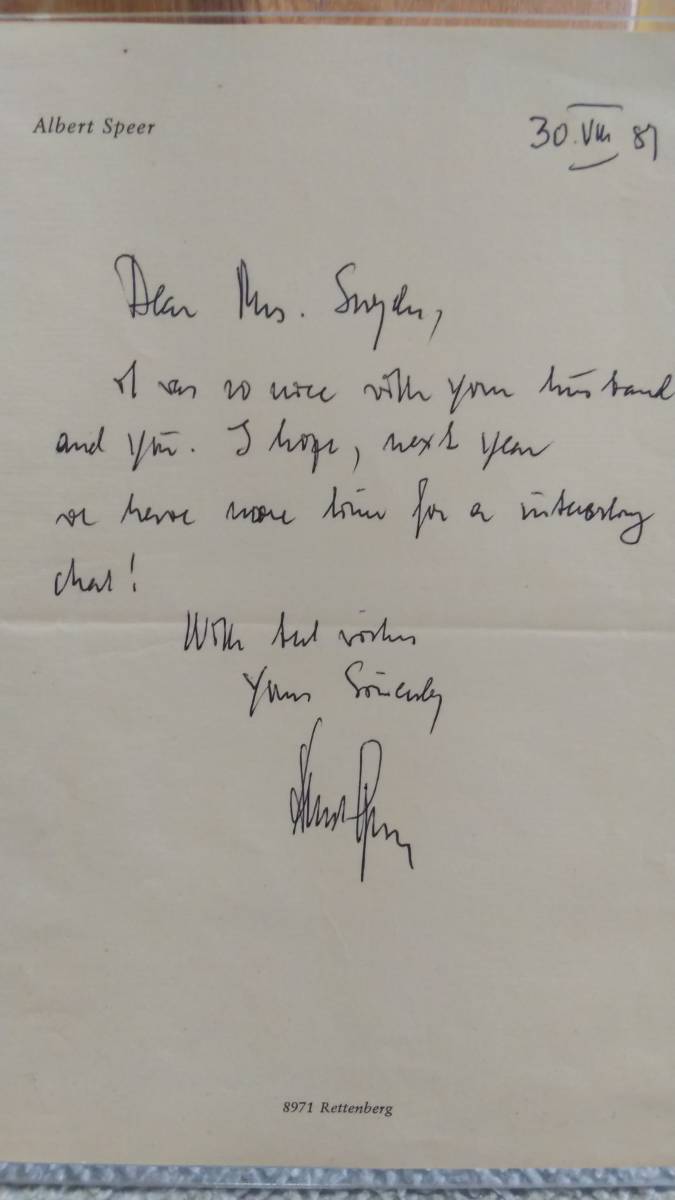 Albert Speer
30.VIII 81
Dear Mrs. Snyder,
it was so nice with your husband
and you. I hope, next year
we have more time for a interesting
chat!
With best wishes
Yours Sincerely
Albert Speer
8971 Rettenberg